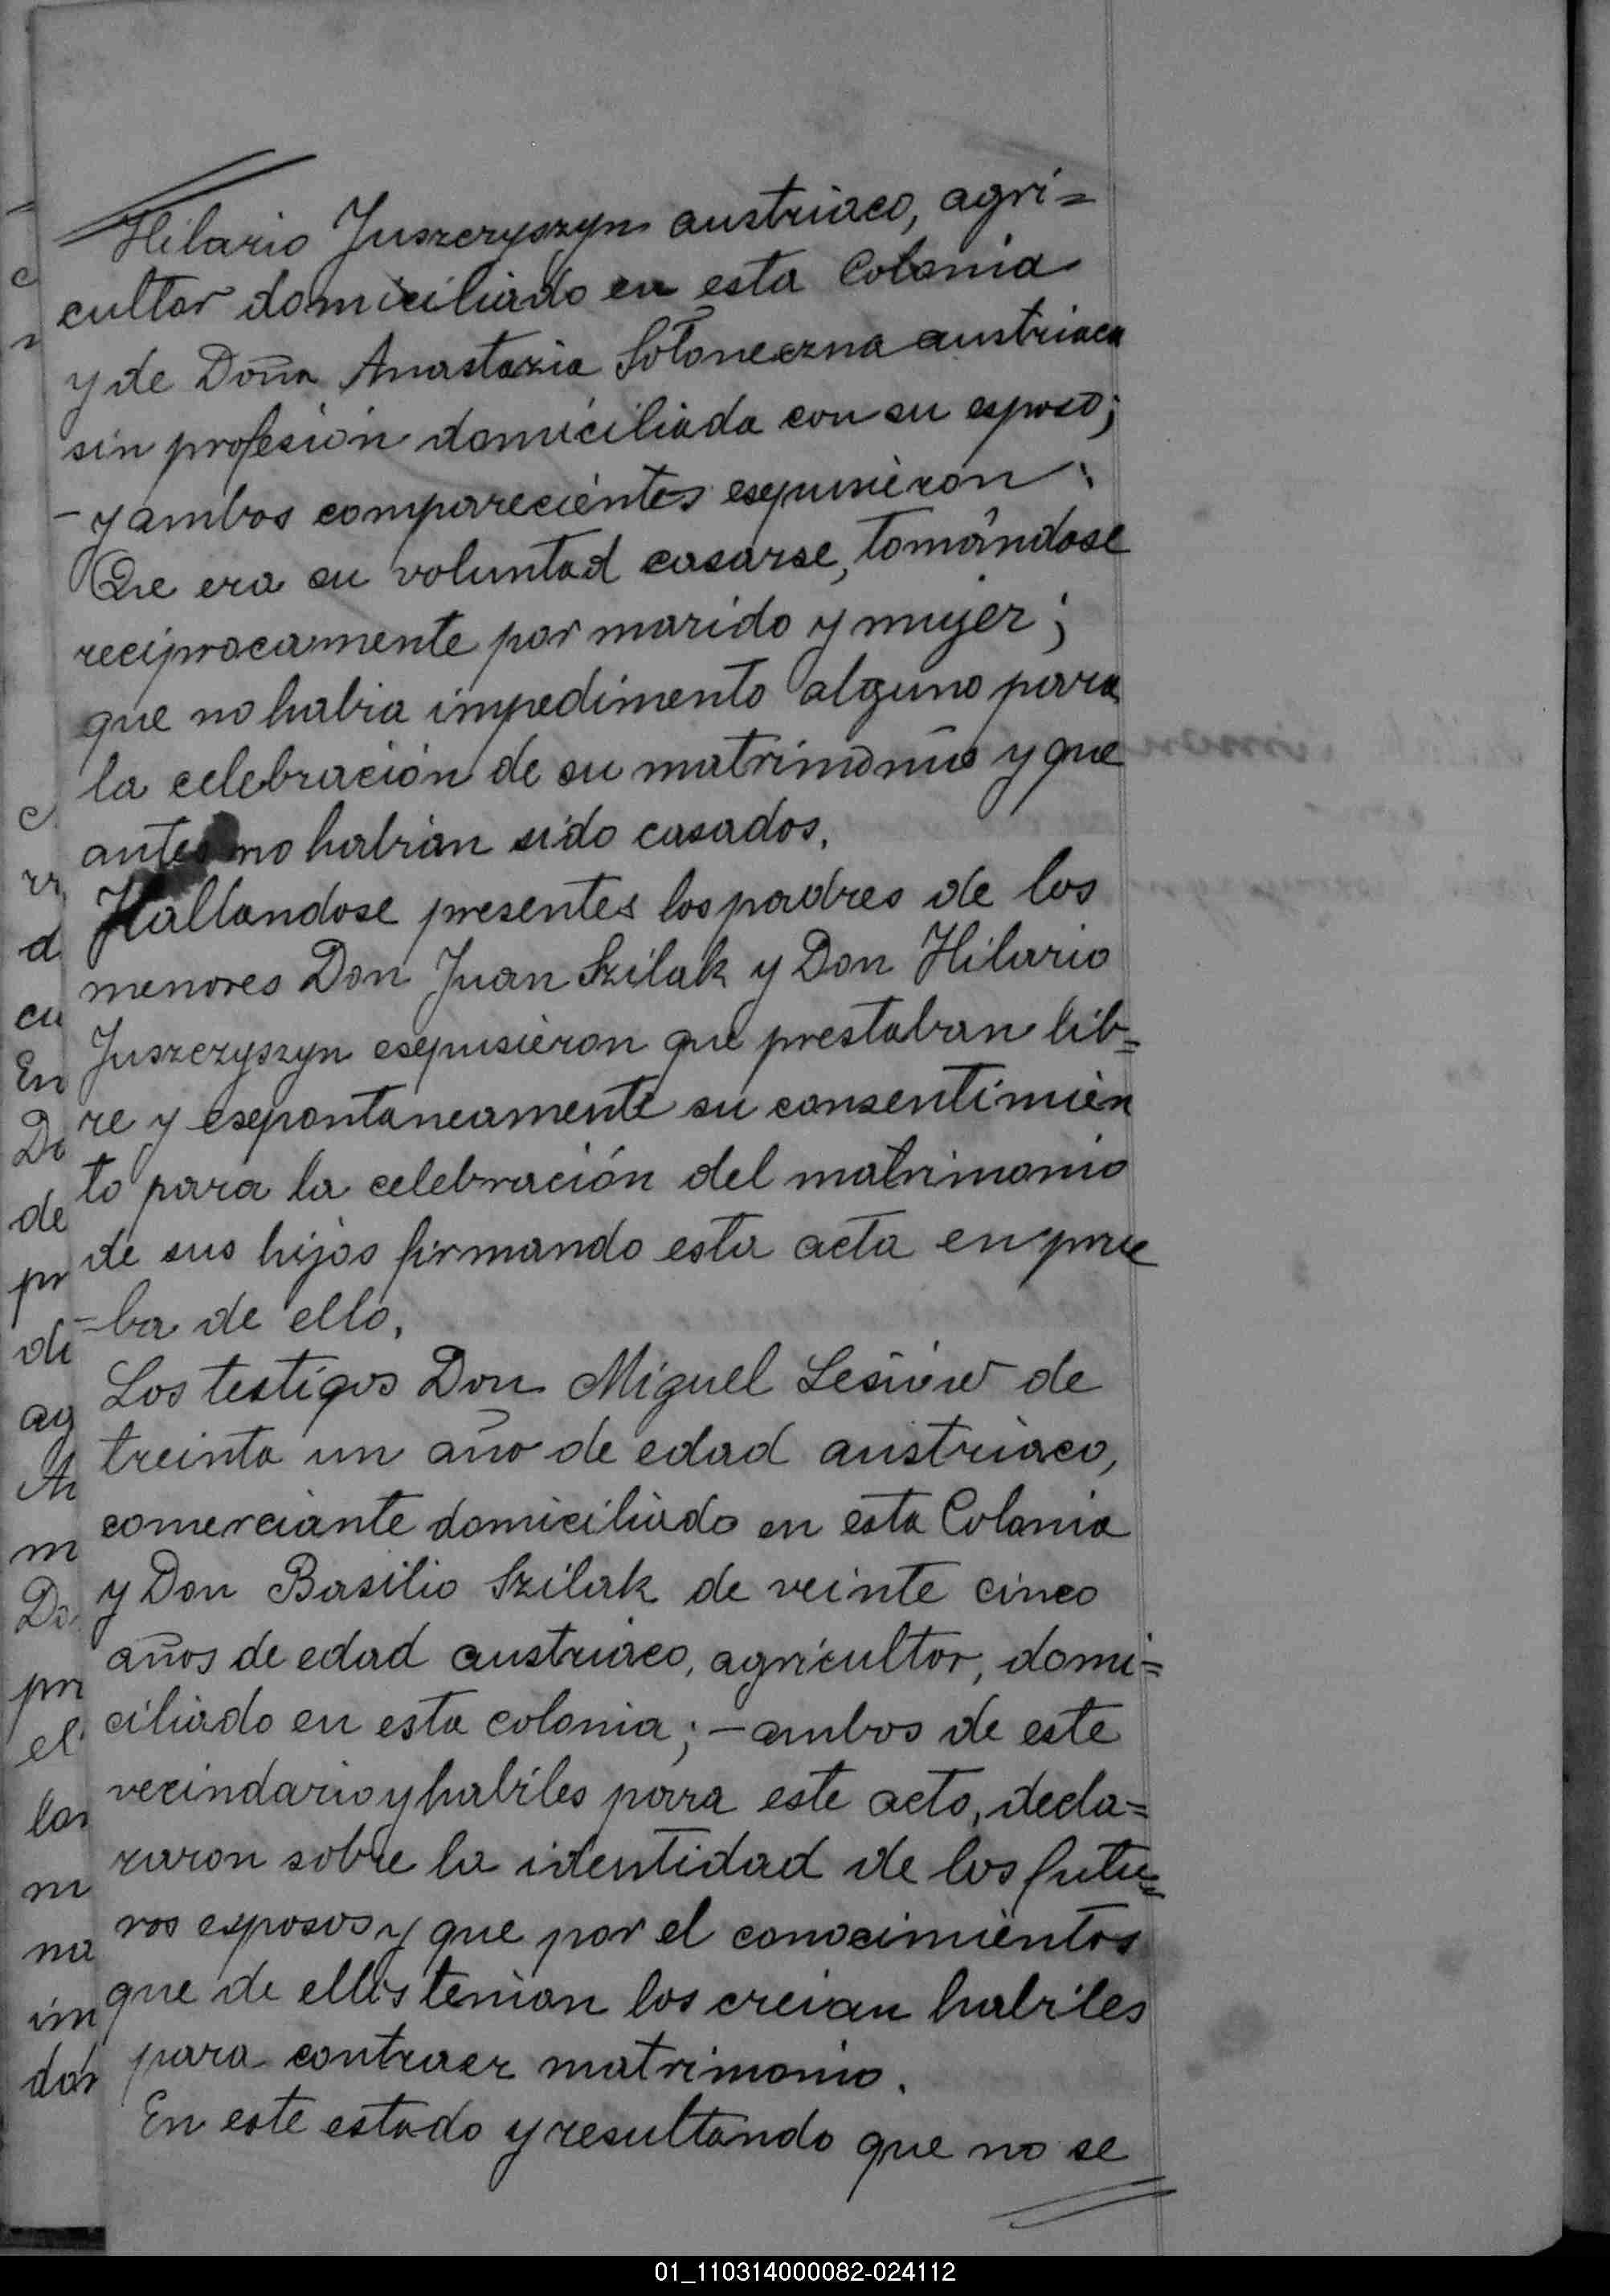 Hilario Juszczyszyn austriaco, agri=
cultor domiciliado en esta Colonia
y de Doña Anastazia Sołoneczna austriaca
sin profesión domiciliada con su esposo;
- y ambos comparecientes espusieron:
Que era su voluntad casarse, tomándose
reciprocamente por marido y mujer;
que no habia impedimento alguno para
la celebración de su matrimonio y que
antes no habian sido casados.
Hallandose presentes los padres de los
menores Don Juan Szilak y Don Hilario
Juszczyszyn esepusieron que prestaban lib=
re y esepontaneamente su consentimien
to para la celebración del matrimonio
de sus hijos firmando esta acta en prue
=ba de ello.
Los testigos Don Miguel Lesiów de
treinta un año de edad austriaco,
comerciante domiciliado en esta Colonia
y Don Basilio Szilak de veinte cinco
años de edad austriaco, agricultor, domi=
ciliado en esta colonia; - ambos de este
vecindario y habiles para este acto, decla=
raron sobre la identidad de los futu=
ros esposos y que por el conocimientos
que de ellos tenian los creian habiles
para contraer matrimonio.
En este estado y resultando que no se
01_110314000082-024112